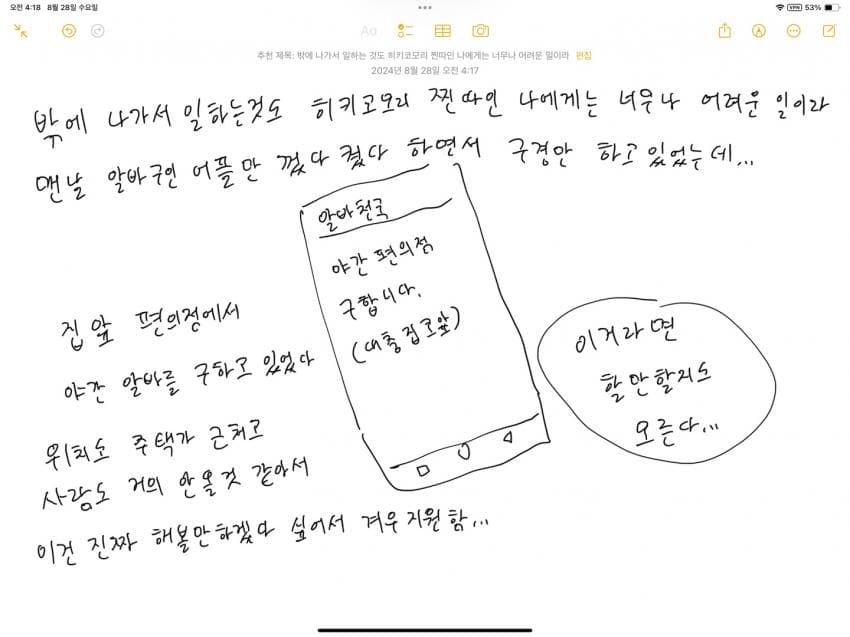 오전 4:18 8월 28일 수요일
VPN 53%
Aa
추천 제목: 밖에 나가서 일하는 것도 히키코모리 찐따인 나에게는 너무나 어려운 일이라 편집
2024년 8월 28일 오전 4:17
밖에 나가서 일하는것도 히키코모리 찐따인 나에게는 너무나 어려운 일이라
맨날 알바구인 어플만 껐다 켰다 하면서 구경만 하고 있었는데...
알바천국
야간 편의점
구합니다.
(대충 집코앞)
집앞 편의점에서
야간 알바를 구하고 있었다
이거라면
할만할지도
모른다...
위치도 주택가 근처고
사람도 거의 안올것 같아서
이건 진짜 해볼만하겠다 싶어서 겨우 지원함...